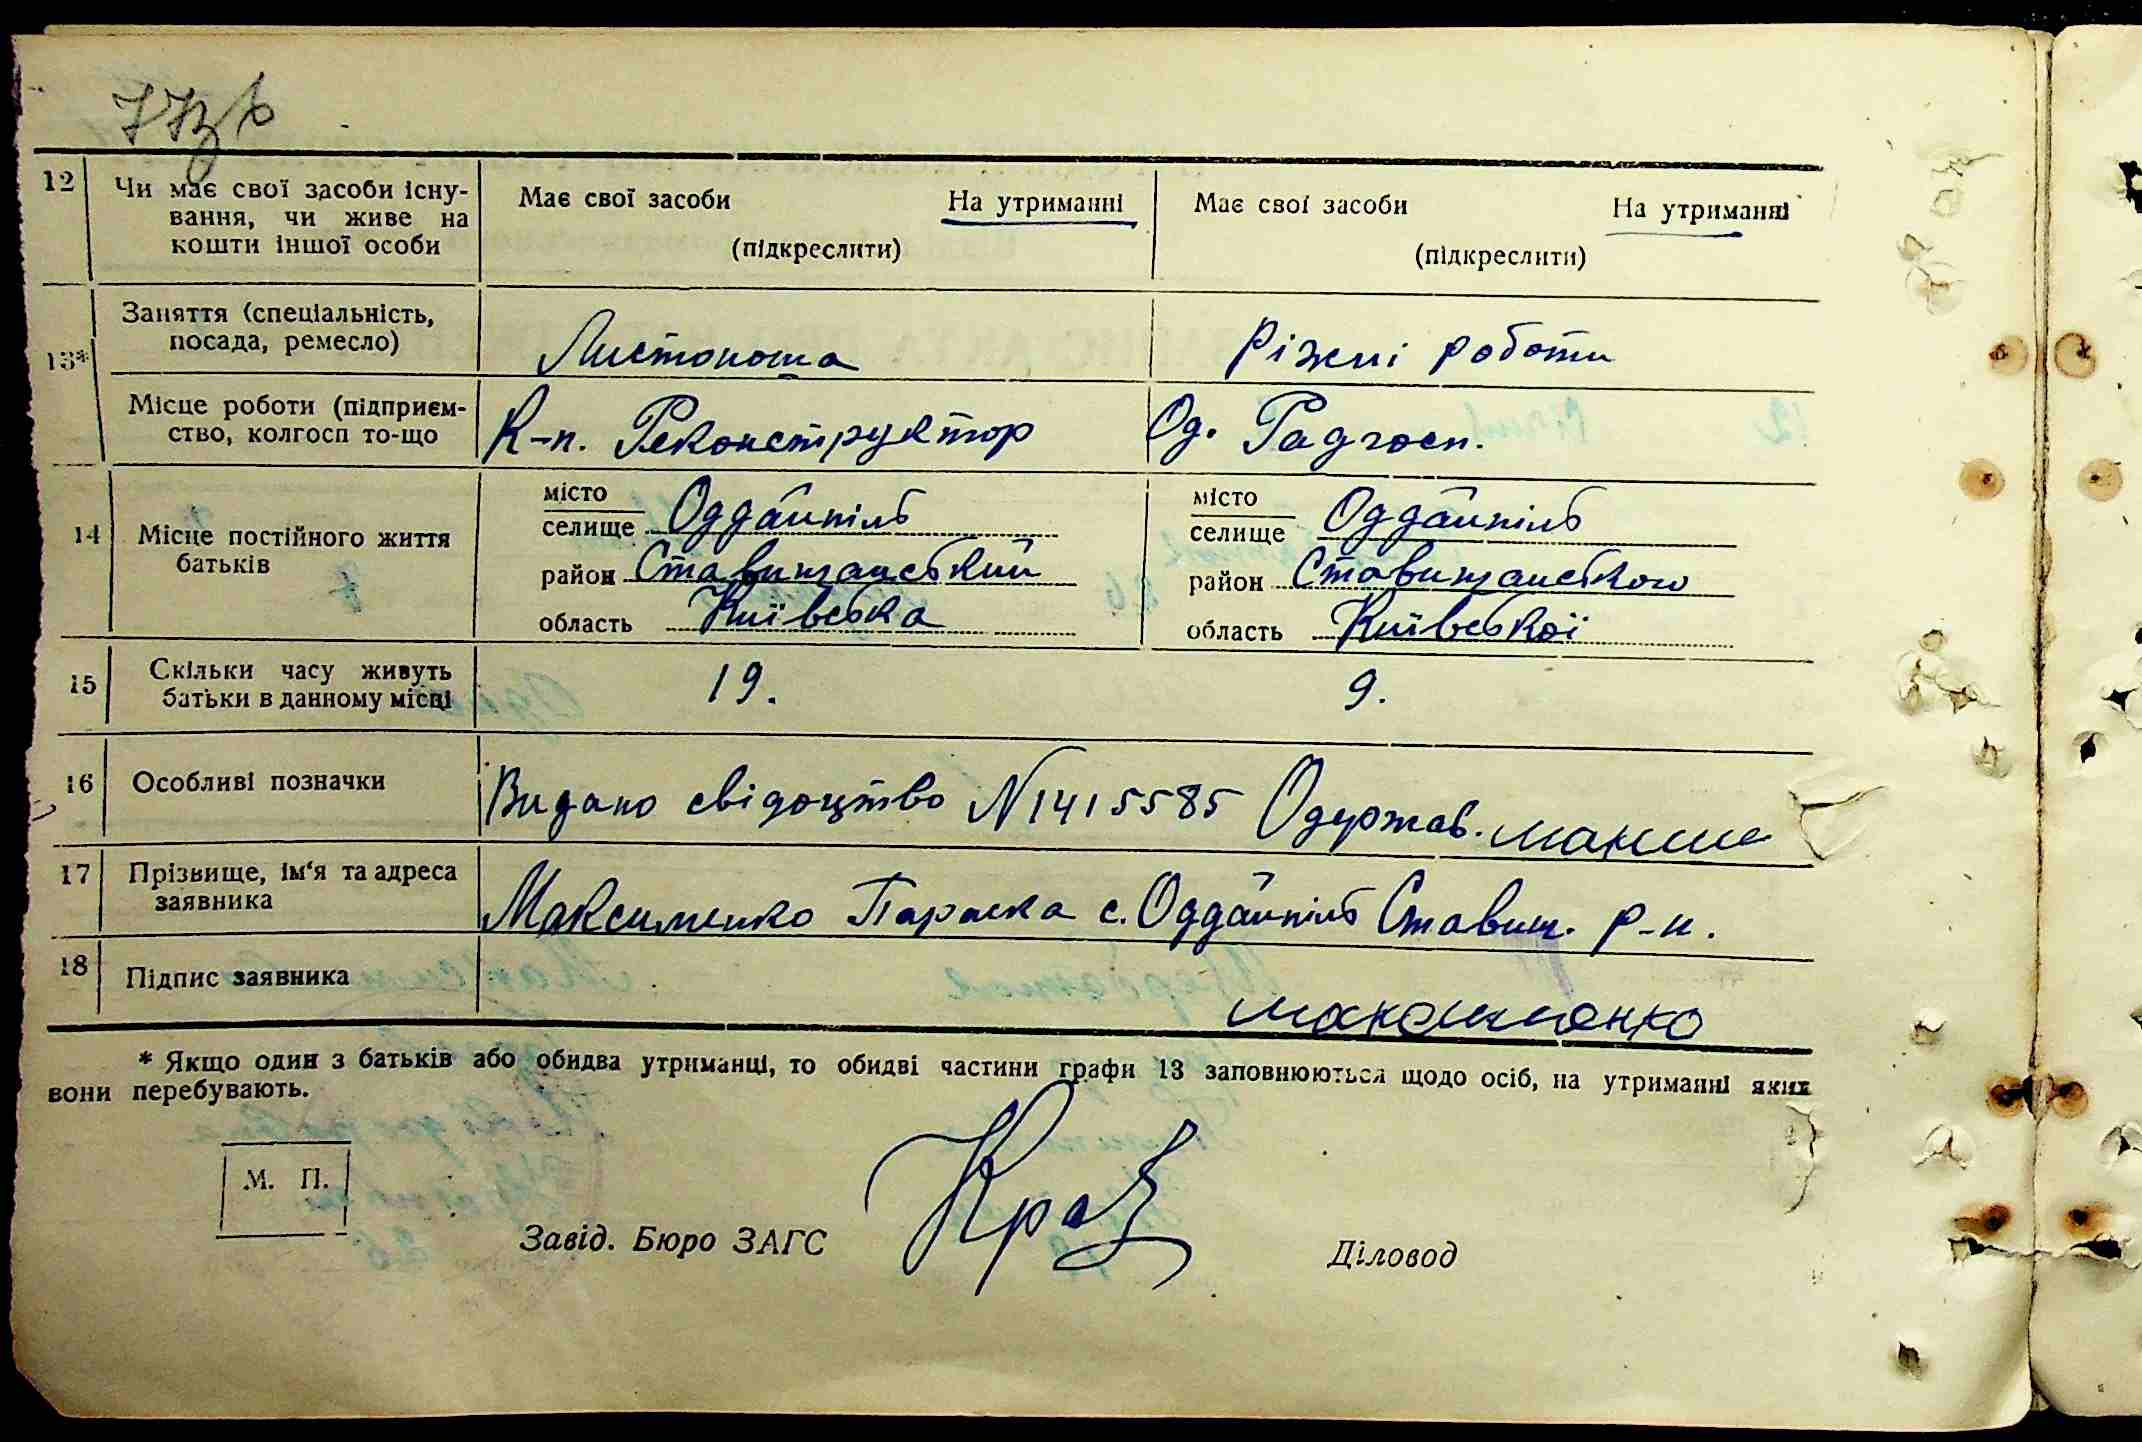 12
Чи має свої засоби існу-
вання, чи живе на
кошти іншої особи
Має свої засоби На утриманні
(підкреслити)
Має свої засоби На утриманні
(підкреслити)
13*
Заняття (спеціальність,
посада, ремесло)
Листоноша
Ріжні роботи
Місце роботи (підприєм-
ство, колгосп то-що
К-п. Реконструктор
Од. Радгосп.
14
Місце постійного життя
батьків
місто
селище Оддайпіль
район Ставищанський
область Київська
місто
селище Оддайпіль
район Ставищанського
область Київської
15
Скільки часу живуть
батьки в данному місці
19.
9.
16
Особливі позначки
Видано свідоцтво N1415585 Одержав.
17
Прізвище, ім'я та адреса
заявника
Максименко Параска с. Оддайпіль Ставищ. р-н.
18
Підпис заявника
Максименко
* Якщо один з батьків або обидва утриманці, то обидві частини графи 13 заповнюються щодо осіб, на утриманні яких
вони перебувають.
М. П.
Завід. Бюро ЗАГС
Діловод